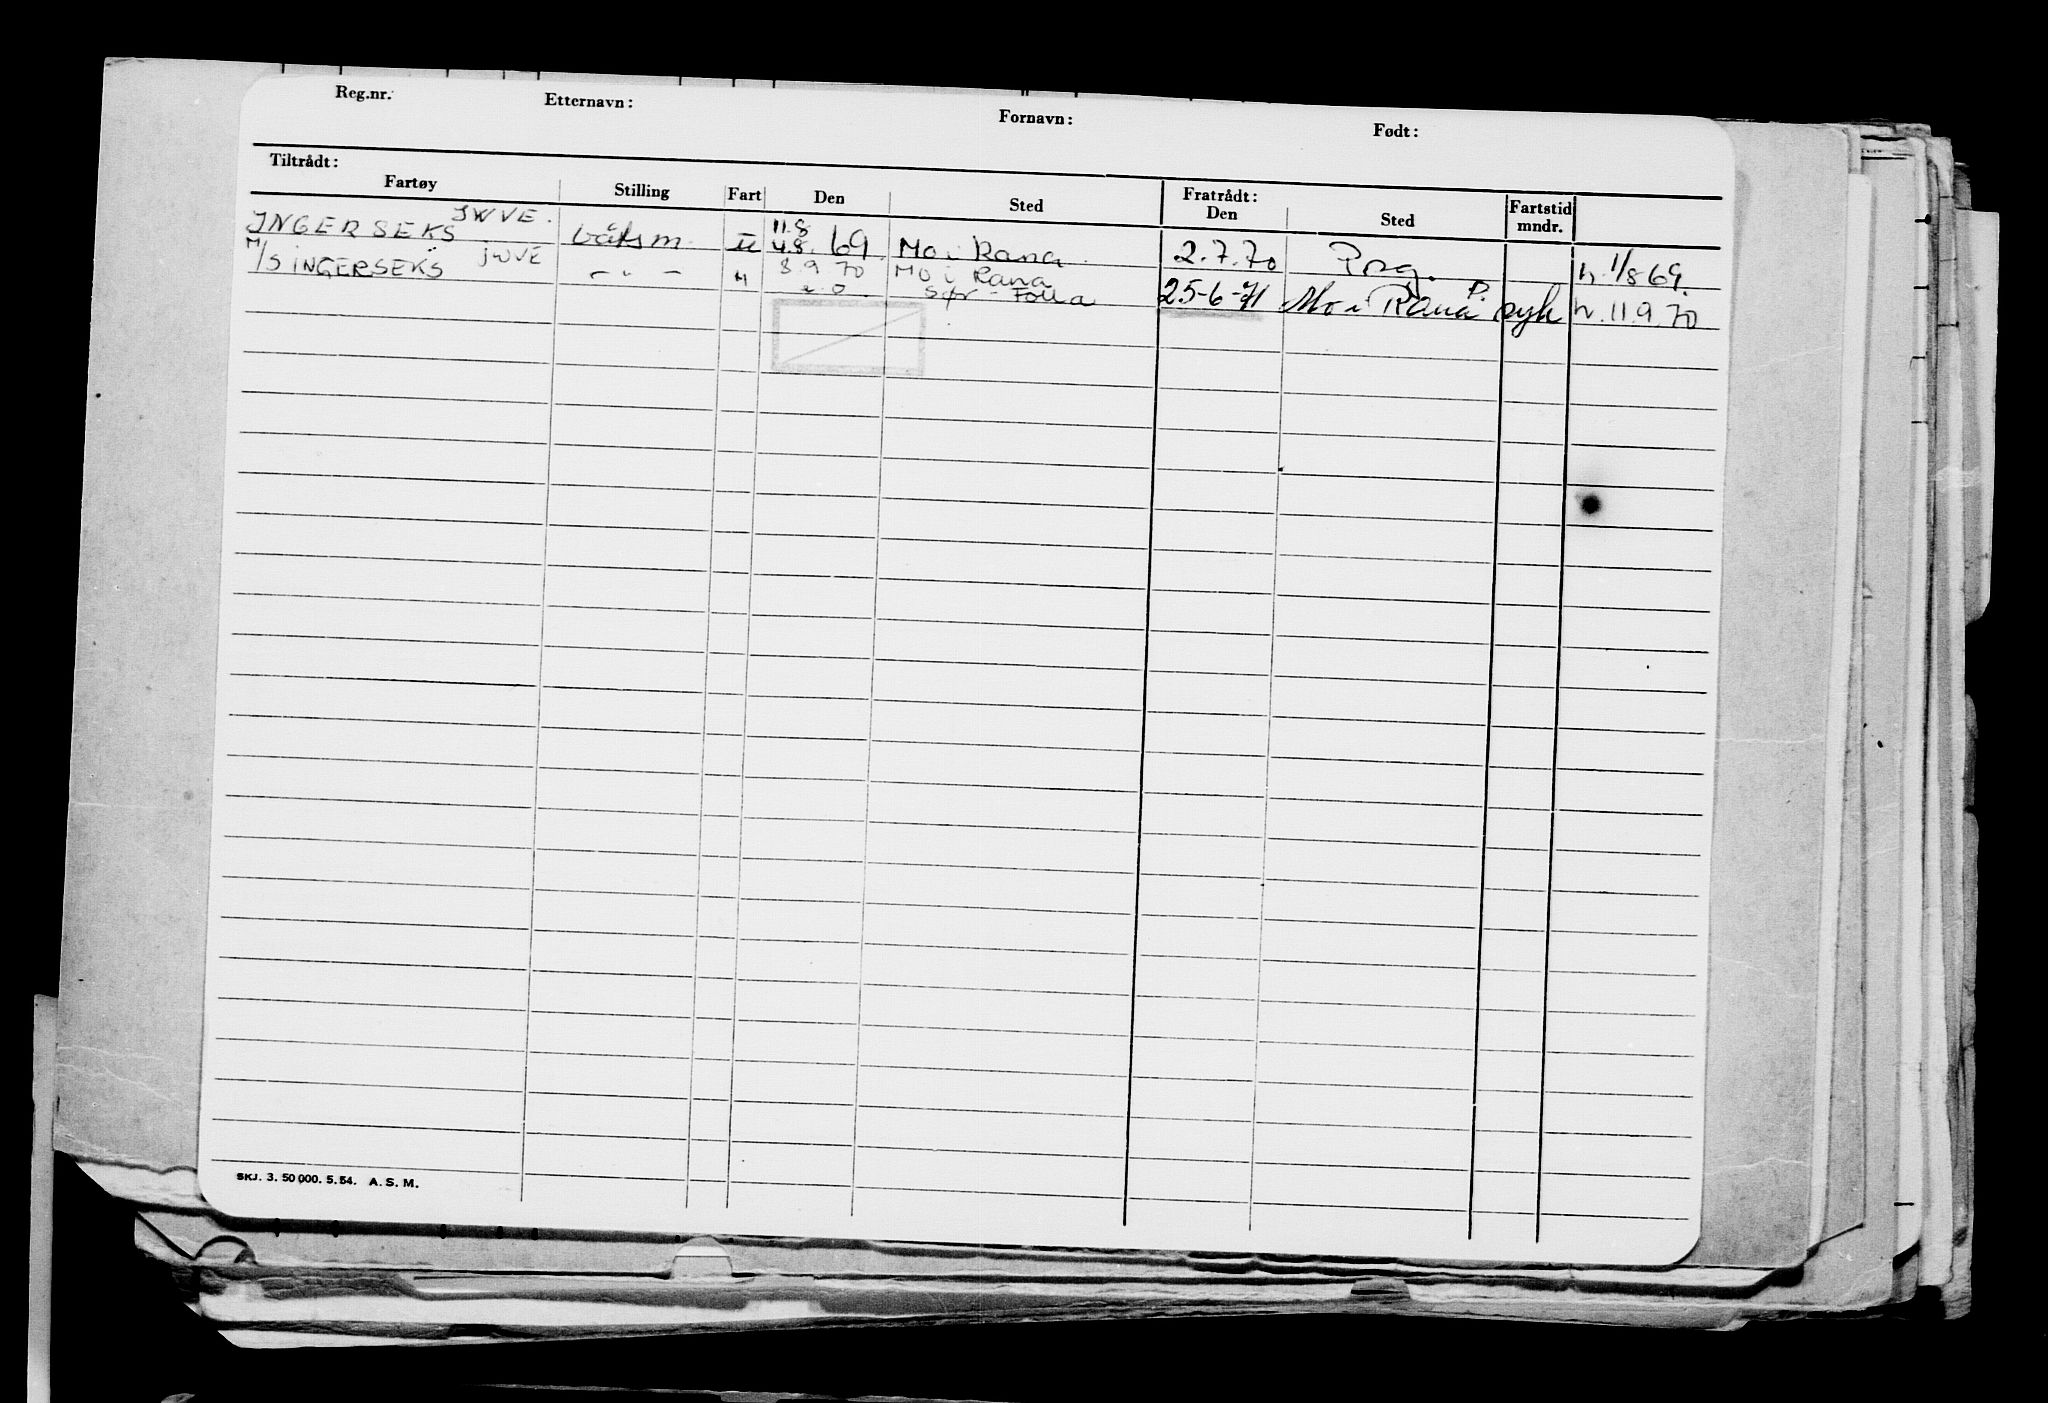 Reg.nr. Etternavn: Fornavn: Født:
Tiltrådt: Fratrådt:
Fartøy Stilling Fart Den Sted Den Sted Fartstid mndr.
JWVE.
11.8
INGERSEKS båtsm. U 4.8. 69 Mo i Rana. 2.7.70 Psg. h. 1/8 69.
M/S INGERSEKS JWVE - " - " 8.9 70 Mo i Rana
Sør-Folla 25-6-71 Mo i Rana P. syk h. 11.9.70
SKJ. 3. 50 000. 5.54. A. S. M.